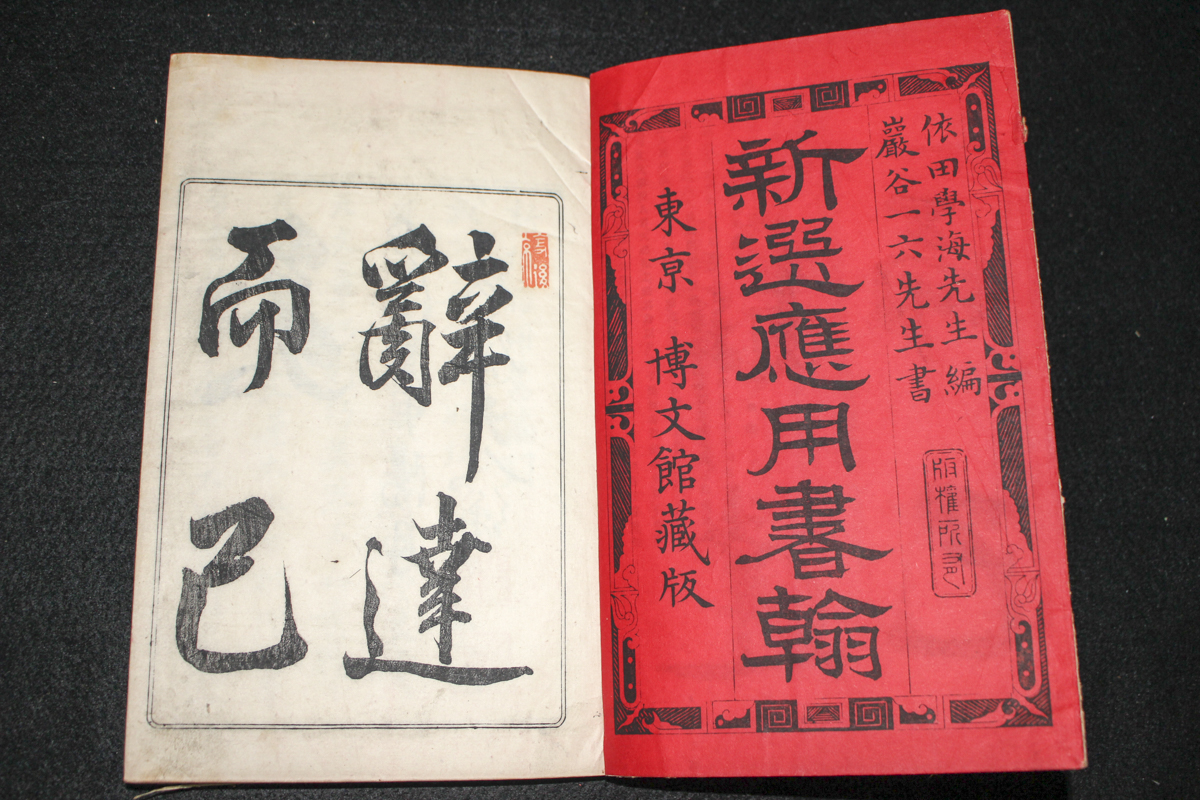 依田學海先生編
巖谷一六先生書
版權所有
新選應用書翰
東京 博文館藏版
辭達
而已